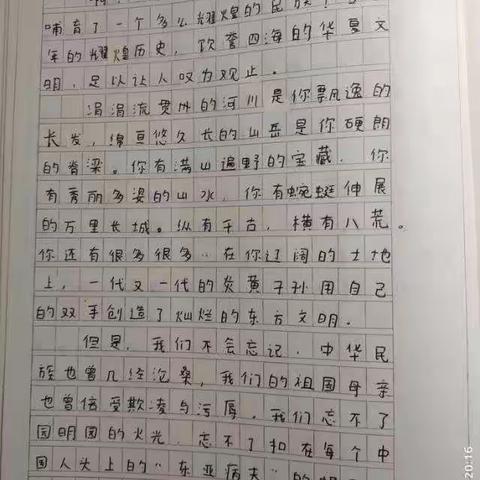 哺育了一个多么耀煌的民族！
年的耀煌历史，饮誉四海的华夏文
明，足以让人叹为观止。
涓涓流贯州的河川是你飘逸的
长发，绵亘悠久长的山岳是你硬朗
的脊梁。你有满山遍野的宝藏，你
有秀丽多姿的山水，你有蜿蜒伸展
的万里长城。纵有千古，横有八荒。
你还有很多很多，在你辽阔的土地
上，一代又一代的炎黄子孙用自己
的双手创造了灿烂的东方文明。
但是，我们不会忘记，中华民
族也曾几经沧桑，我们的祖国母亲
也曾倍受欺凌与污辱。我们忘不了
园明园的火光，忘不了扣在每个中
国人头上的“东亚病夫”的
20:16